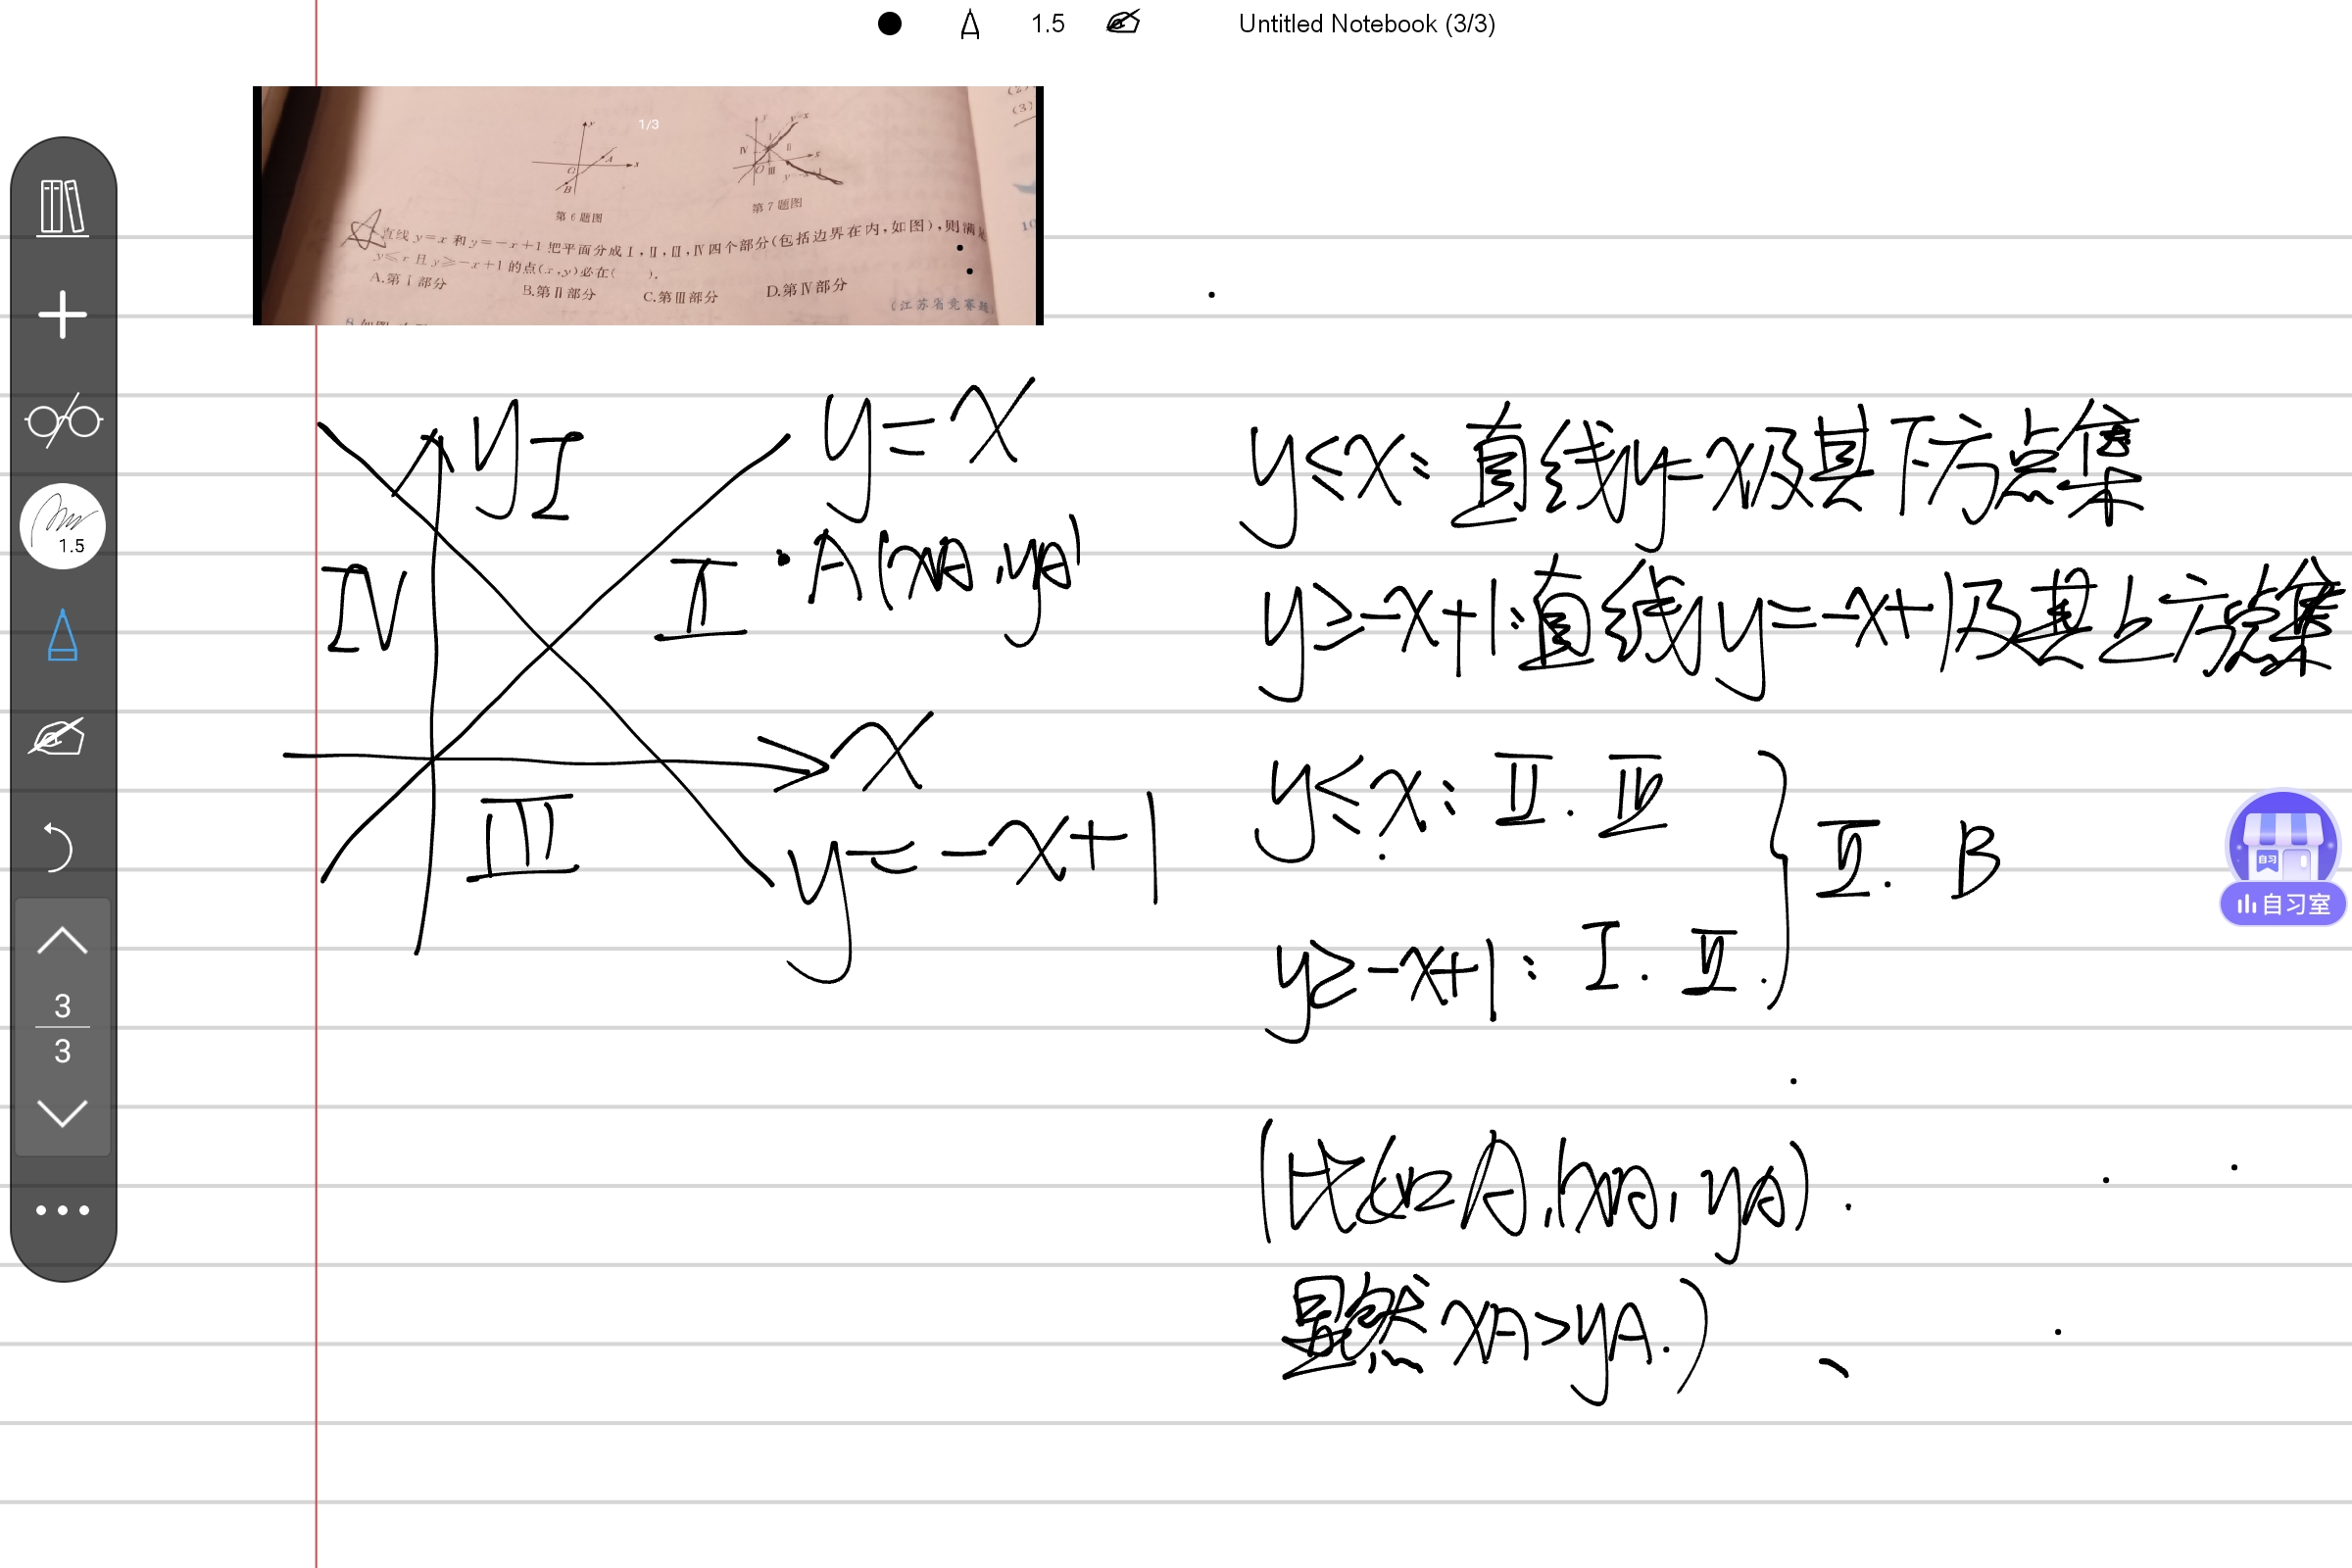 1.5
Untitled Notebook (3/3)
1/3
y
A
x
B
第6题图
y
y=x
I
IV
II
x
O
III
第7题图
直线y=x和y=-x+1把平面分成Ⅰ,Ⅱ,Ⅲ,Ⅳ四个部分(包括边界在内,如图),则满足
y≤x且y≥-x+1的点(x,y)必在( ).
A.第Ⅰ部分 B.第Ⅱ部分 C.第Ⅲ部分 D.第Ⅳ部分
(江苏省竞赛题
(3)
10
1.5
3
3
y
I
y=x
IV
II
A(xA,yA)
x
III
y=-x+1
y≤x:直线y=x及其下方点集
y≥-x+1:直线y=-x+1及其上方点集
y≤x: II.
y≥-x+1: I. II.
II. B
(比如A,(xA,yA).
显然xA>yA.)
自习
自习室